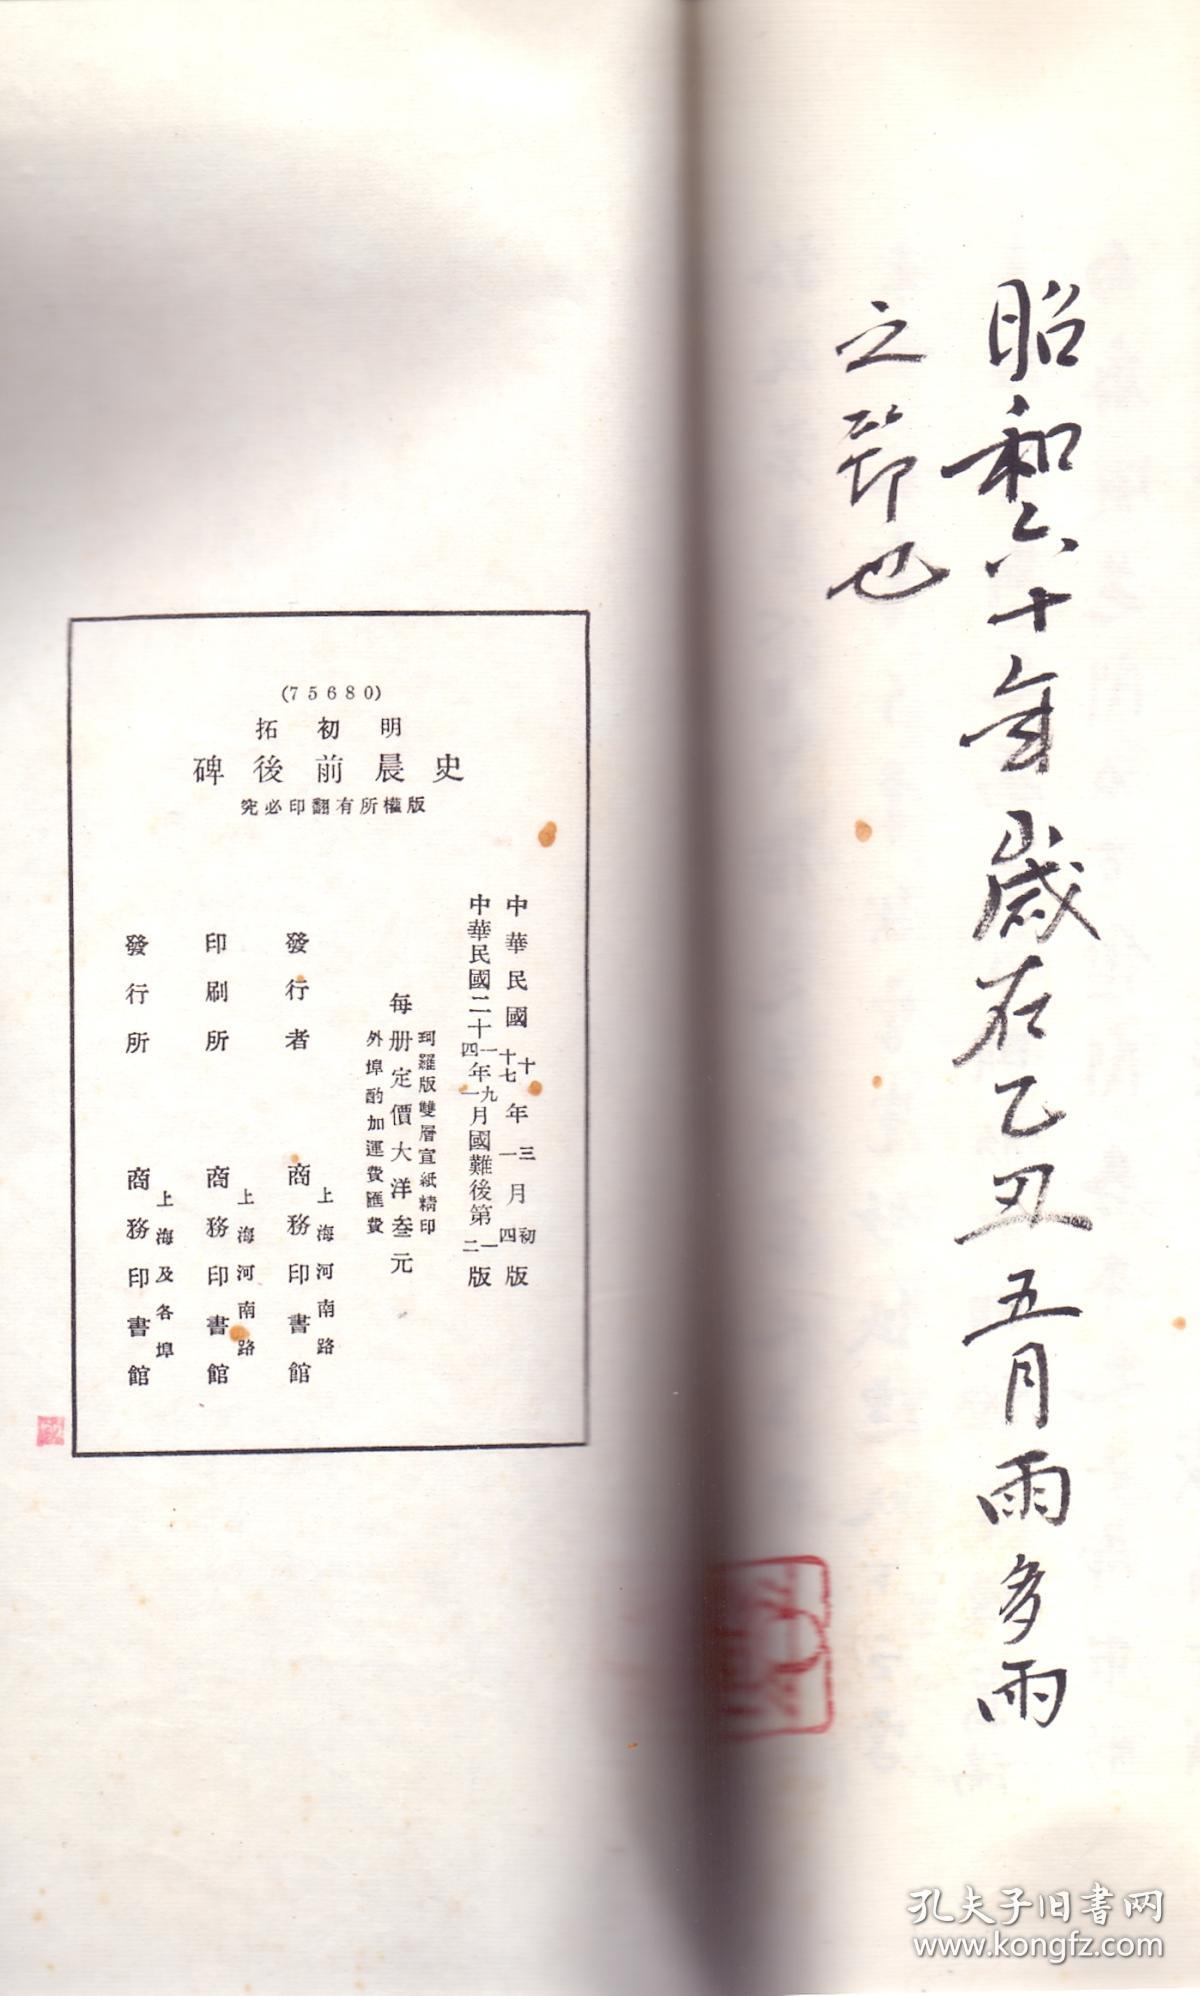 昭和六十年歲在乙丑五月雨多雨
之節也
(75680)
明初拓
史晨前後碑
版權所有翻印必究
中華民國十年三月初版
十七年一月四版
中華民國二十一年九月國難後第一版
二十四年一月國難後第二版
珂羅版雙層宣紙精印
每册定價大洋叁元
外埠酌加運費匯費
發行者
上海河南路
商務印書館
印刷所
上海河南路
商務印書館
發行所
上海及各埠
商務印書館
孔夫子旧书网
www.kongfz.com